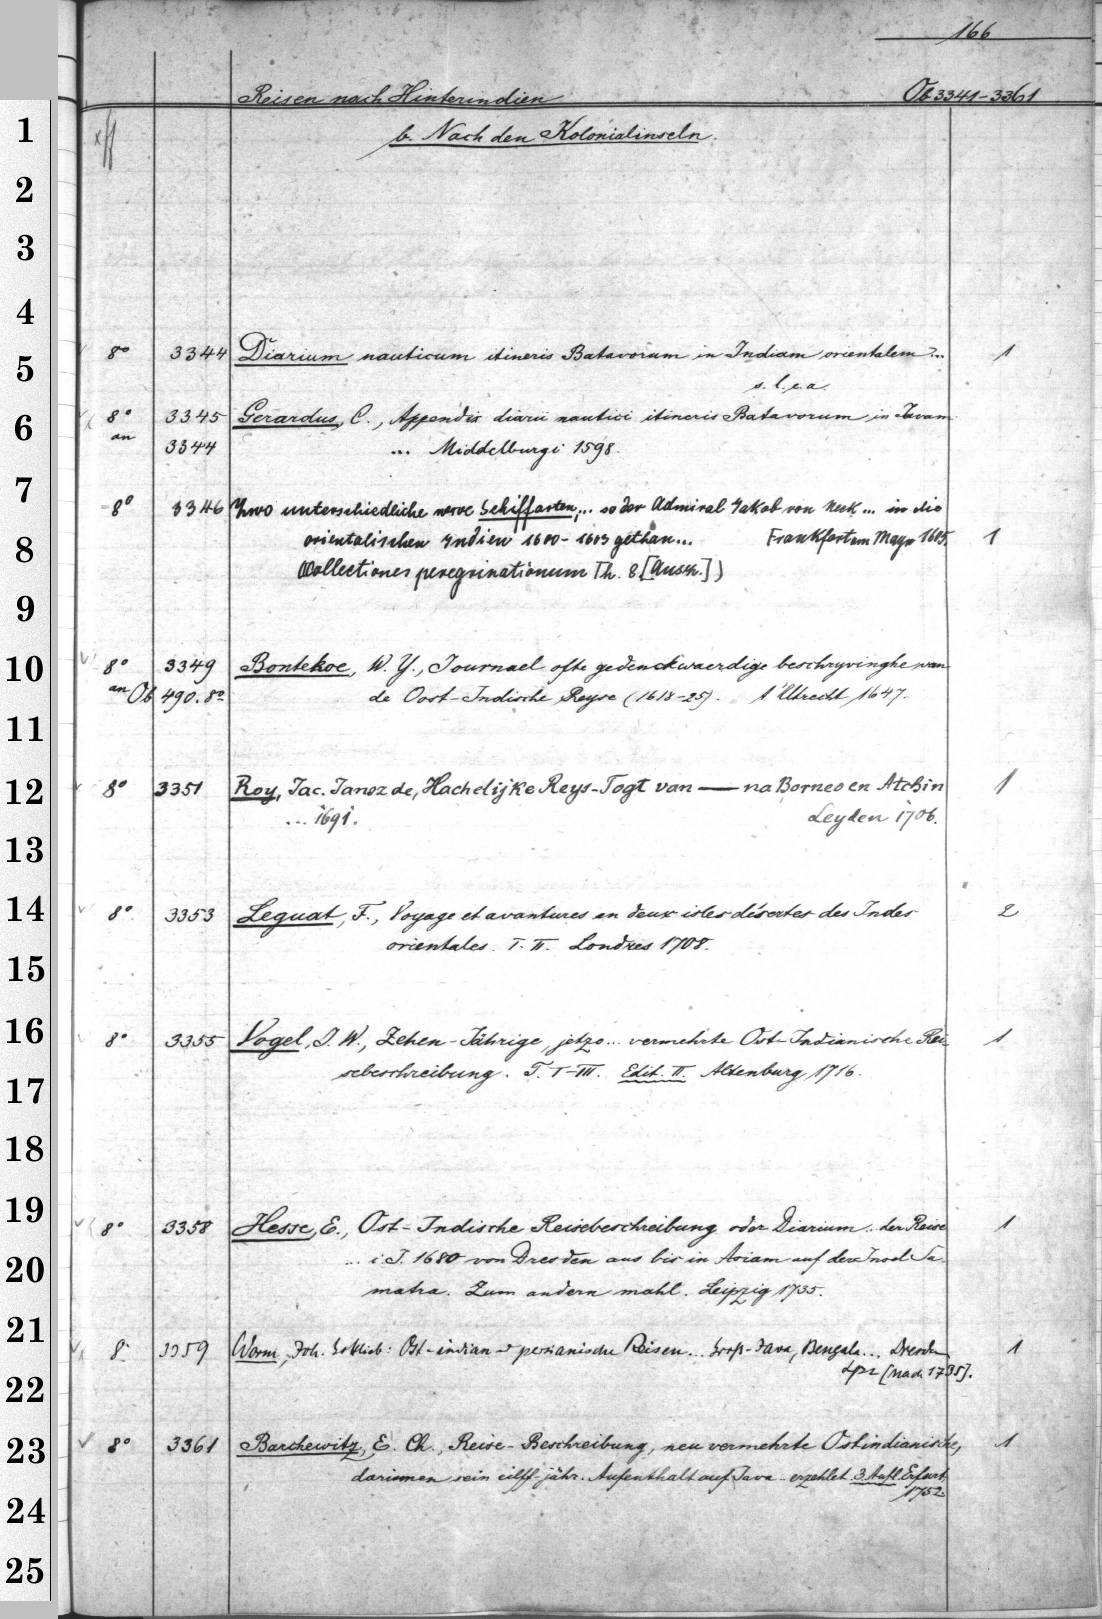 166
Reisen nach Hinterindien Ob 3341-3361
1 b. Nach den Kolonialinseln.
2
3
4
5 8° 3344 Diarium nauticum itineris Batavorum in Indiam orientalem... 1
s. l. e. a.
6 8° 3345 Gerardus, C., Appendix diarii nautici itineris Batavorum in Javam
an 3344 ... Middelburgi 1598.
7 8° 3346 Zwo unterschiedliche newe Schiffarten,... so der Admiral Jakob von Neck... in die
8 orientalischen Indien 1600-1603 gethan... Frankfort am Mayn 1605. 1
Collectiones peregrinationum Th. 8 [Ausz.])
9
10 8° 3349 Bontekoe, W. Y., Journael ofte gedenckwaerdige beschryvinghe van
an Ob 490. 8° de Oost-Indische Reyse (1618-25). Utrecht 1647.
11
12 8° 3351 Roy, Jac. Jansz de, Hachelijke Reys-Togt van — na Borneo en Atchin 1
... 1691. Leyden 1706.
13
14 8° 3353 Leguat, F., Voyage et avantures en deux isles désertes des Indes 2
orientales. T. II. Londres 1708.
15
16 8° 3355 Vogel, J. W., Zehen-Jährige, jetzo... vermehrte Ost-Indianische Rei- 1
17 sebeschreibung. T. I-III. Edit. II. Altenburg 1716.
18
19 8° 3358 Hesse, E., Ost-Indische Reisebeschreibung oder Diarium.. der Reise 1
20 ... i. J. 1680 von Dresden aus bis in Asiam auf der Insel Sa-
matra. Zum andern mahl. Leipzig 1735.
21 8° 3359 Worm, Joh. Gottlieb: Ost-indian- u persianische Reisen... Gross-Java, Bengala... Dresden 1
22 Lpz [nach 1735].
23 8° 3361 Barchewitz, E. Ch., Reise-Beschreibung, neu vermehrte Ostindianische, 1
darinnen sein eilff-jähr. Aufenthalt auf Java erzehlet. 3. Aufl. Erfurt
24 1752.
25